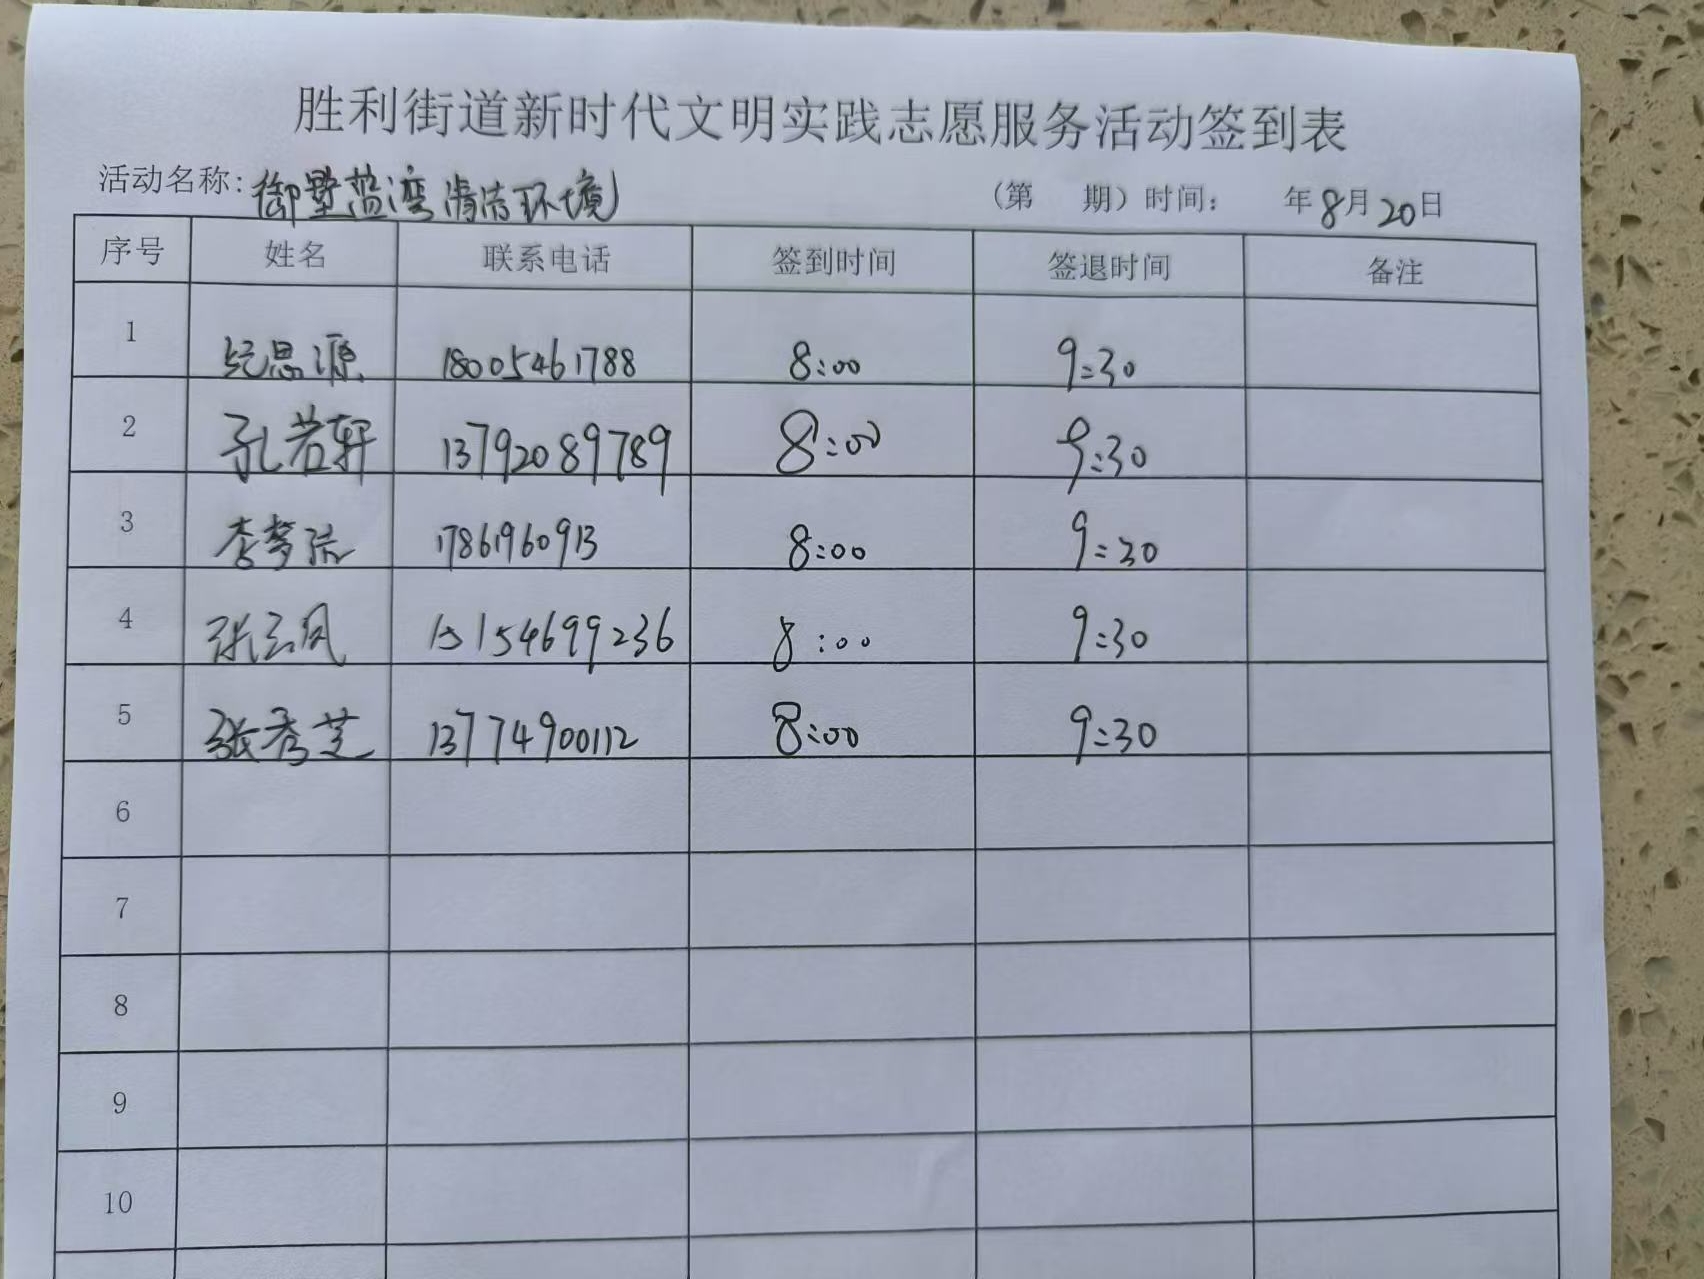 胜利街道新时代文明实践志愿服务活动签到表
活动名称:御墅蓝湾清洁环境 (第 期)时间: 年8月20日
序号 姓名 联系电话 签到时间 签退时间 备注
1 纪思源 18005461788 8:00 9:30
2 孔若轩 13792089789 8:00 9:30
3 李梦 17861960913 8:00 9:30
4 张云凤 15154699236 8:00 9:30
5 张秀芝 13774900112 8:00 9:30
6
7
8
9
10